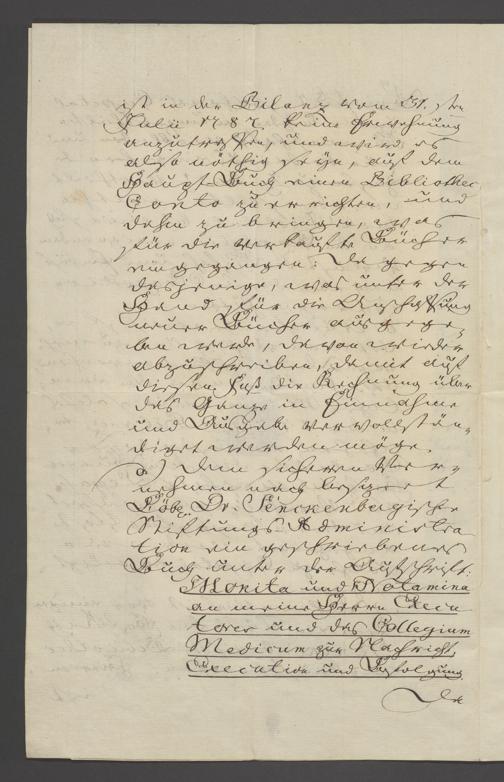 ist in der Bilanz vom 31. sten
Julii 1787 keine Erwehnung
anzutreffen, und wird es
also nöthig seyn, auf dem
Haupt Buch einen Bibliothec
Conto zu errichten, und
dahin zu bringen, was
für die verkaufte Bücher
eingegangen: Dagegen
dasjenige, was unter der
Hand für die Anschaffung
neuer Bücher ausgege,
ben werde, davon wieder
abzuschreiben, damit auf
diesen Fuß die Rechnung über
das Ganze in Einnahme
und Ausgabe vervollstän,
diget werden möge.
Dem sicheren Ver,
nehmen nach besizet
Löbl. Dr. Senckenbergische
Stiftungs-Administra
tion ein geschriebenes
Buch unter der Aufschrift:
Monita und Notamina
an meine Herrn Execu
tores und das Collegium
Medicum zur Nachricht,
Execution und Befolgung.